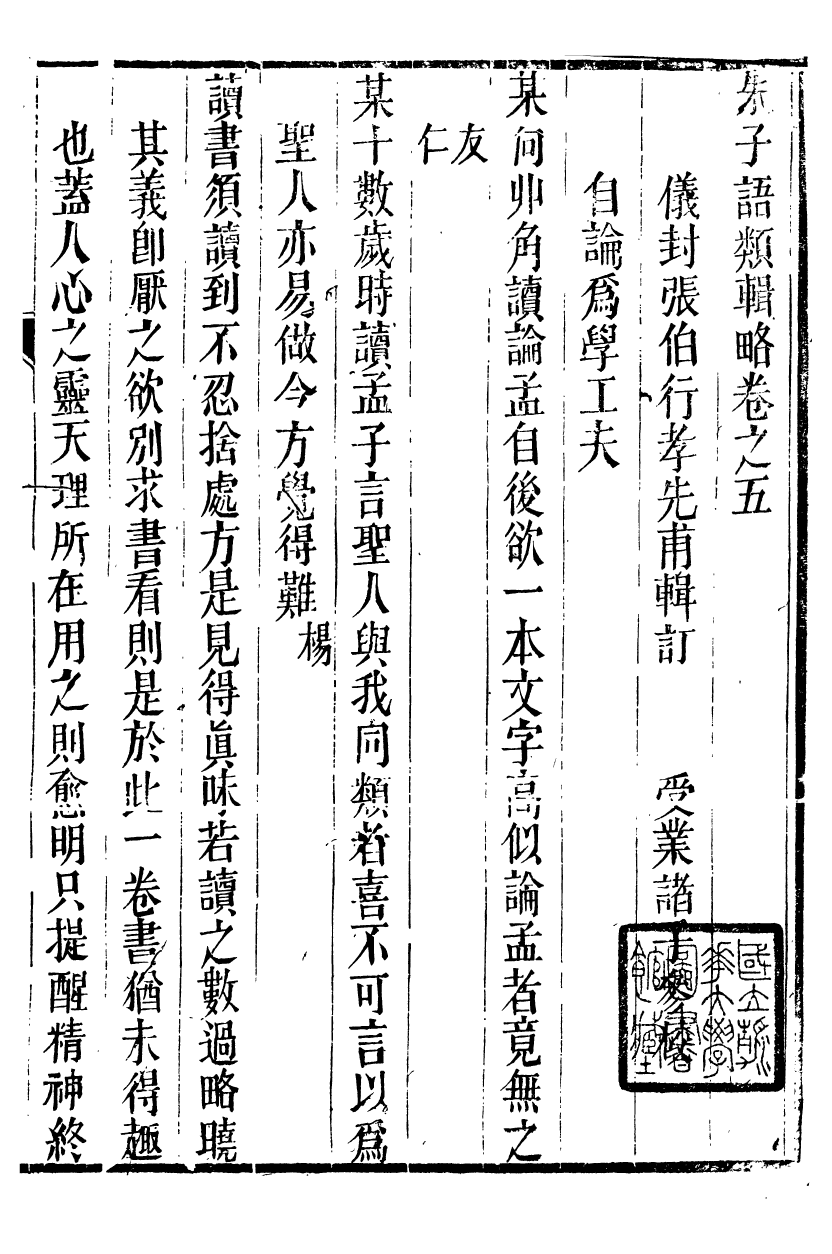 朱子語類輯略卷之五
儀封張伯行孝先甫輯訂　受業諸子
自論爲學工夫
某向丱角讀論孟自後欲一本文字高似論孟者竟無之
友仁
某十數歲時讀孟子言聖人與我同類者喜不可言以爲
聖人亦易做今方覺得難楊
讀書須讀到不忍捨處方是見得眞味若讀之數過略曉
其義卽厭之欲別求書看則是於此一卷書猶未得趣
也蓋人心之靈天理所在用之則愈明只提醒精神終
國立
大學